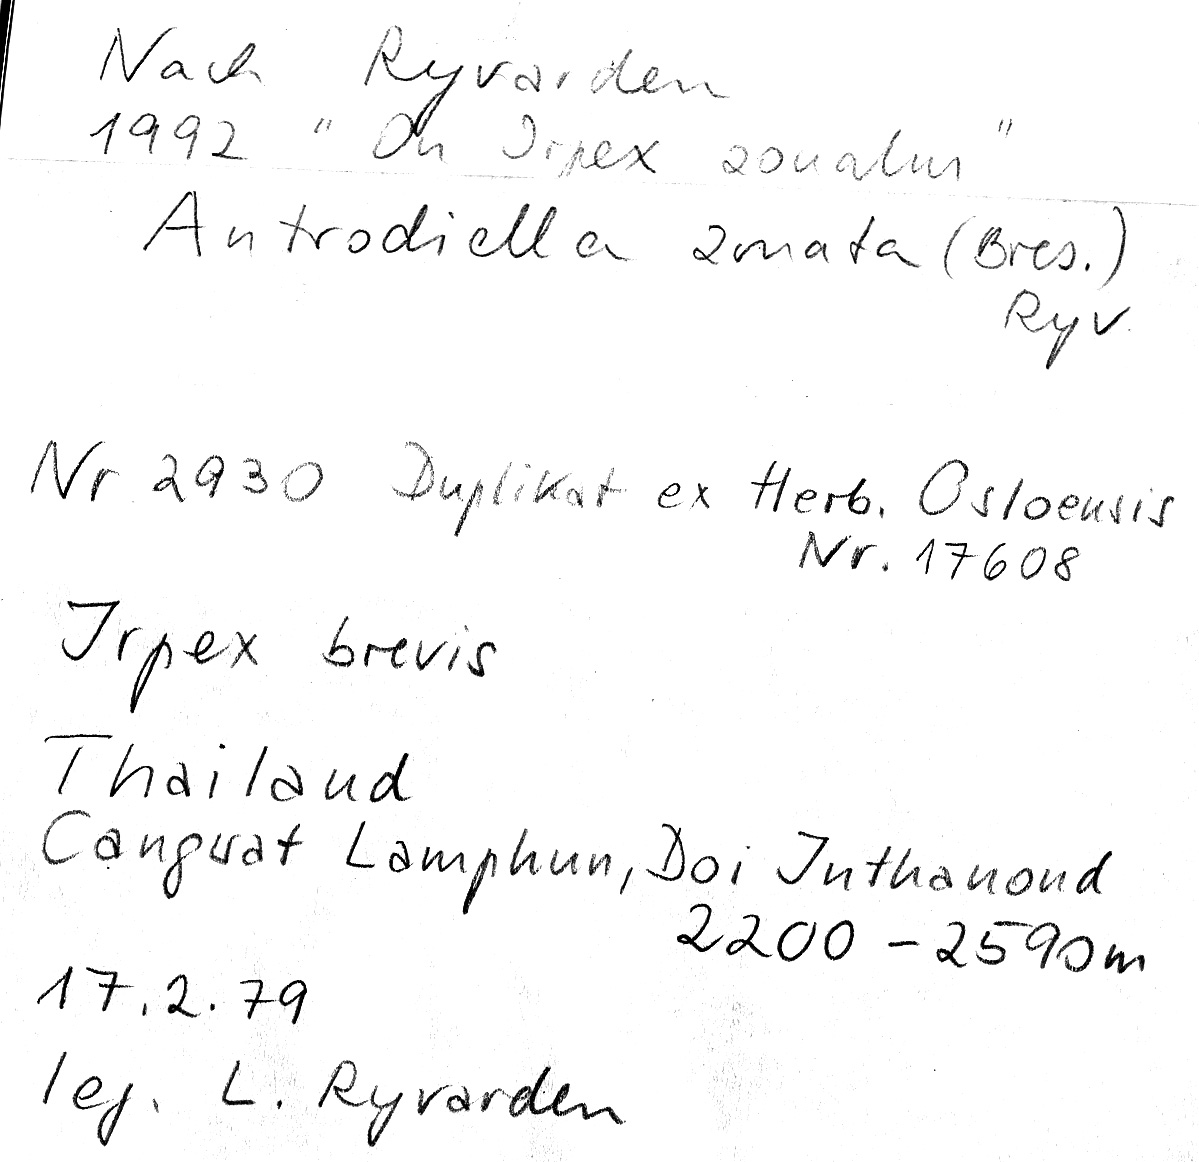 Nach Ryvarden
1992 "On Irpex zonatus"
Antrodiella zonata (Bres.)
Ryv.
Nr 2930 Duplikat ex Herb. Osloensis
Nr. 17608
Irpex brevis
Thailand
Cangwat Lamphun, Doi Inthanond
2200 - 2590m
17.2.79
leg. L. Ryvarden